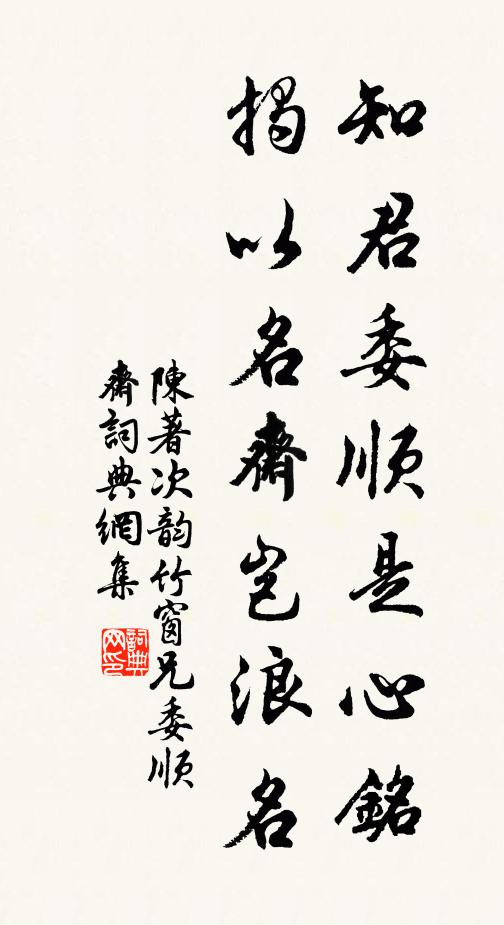 知君委順是心銘
揭以名齋豈浪名
陳著次韵竹窗兄委順
齋詞典網集
詞典
网印